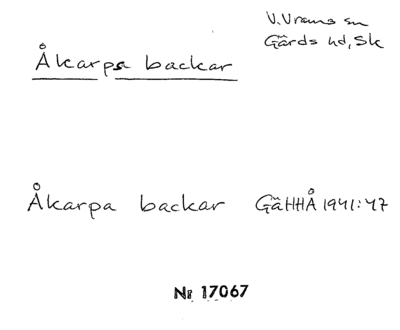 V. Vrams sn
Gärds hd, Sk
Åkarps backar
Åkarpa backar GäHHÅ 1941:47
Nr 17067